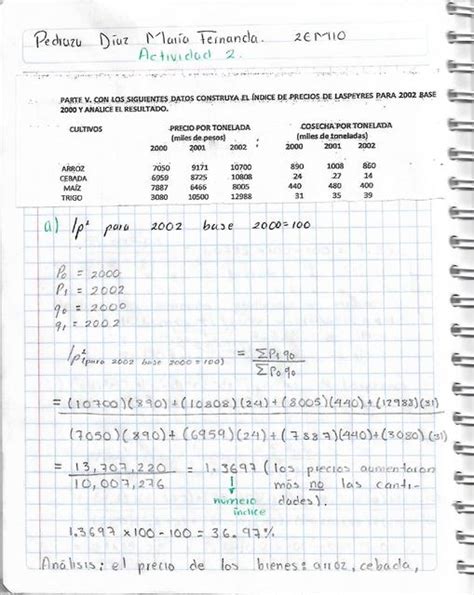 Pedraza Díaz María Fernanda. 2EM10
Actividad 2.
PARTE V. CON LOS SIGUIENTES DATOS CONSTRUYA EL ÍNDICE DE PRECIOS DE LASPEYRES PARA 2002 BASE
2000 Y ANALICE EL RESULTADO.
CULTIVOS PRECIO POR TONELADA COSECHA POR TONELADA
(miles de pesos) (miles de toneladas)
2000 2001 2002 2000 2001 2002
ARROZ 7050 9171 10700 890 1008 860
CEBADA 6959 8725 10808 24 27 14
MAÍZ 7887 6466 8005 440 480 400
TRIGO 3080 10500 12988 31 35 39
a) Ip² para 2002 base 2000=100
P₀ = 2000
P₁ = 2002
q₀ = 2000
q₁ = 2002
Ip² (para 2002 base 2000=100) = ΣP₁q₀
ΣP₀q₀
= (10700)(890)+(10808)(24)+(8005)(440)+(12983)(31)
(7050)(890)+(6959)(24)+(7887)(440)+(3080)(31)
= 13,707,220 = 1.3697 (los precios aumentaron
10,007,276 más no las canti-
número dades).
índice
1.3697 x100-100 = 36.97%
Análisis: el precio de los bienes: arroz, cebada,